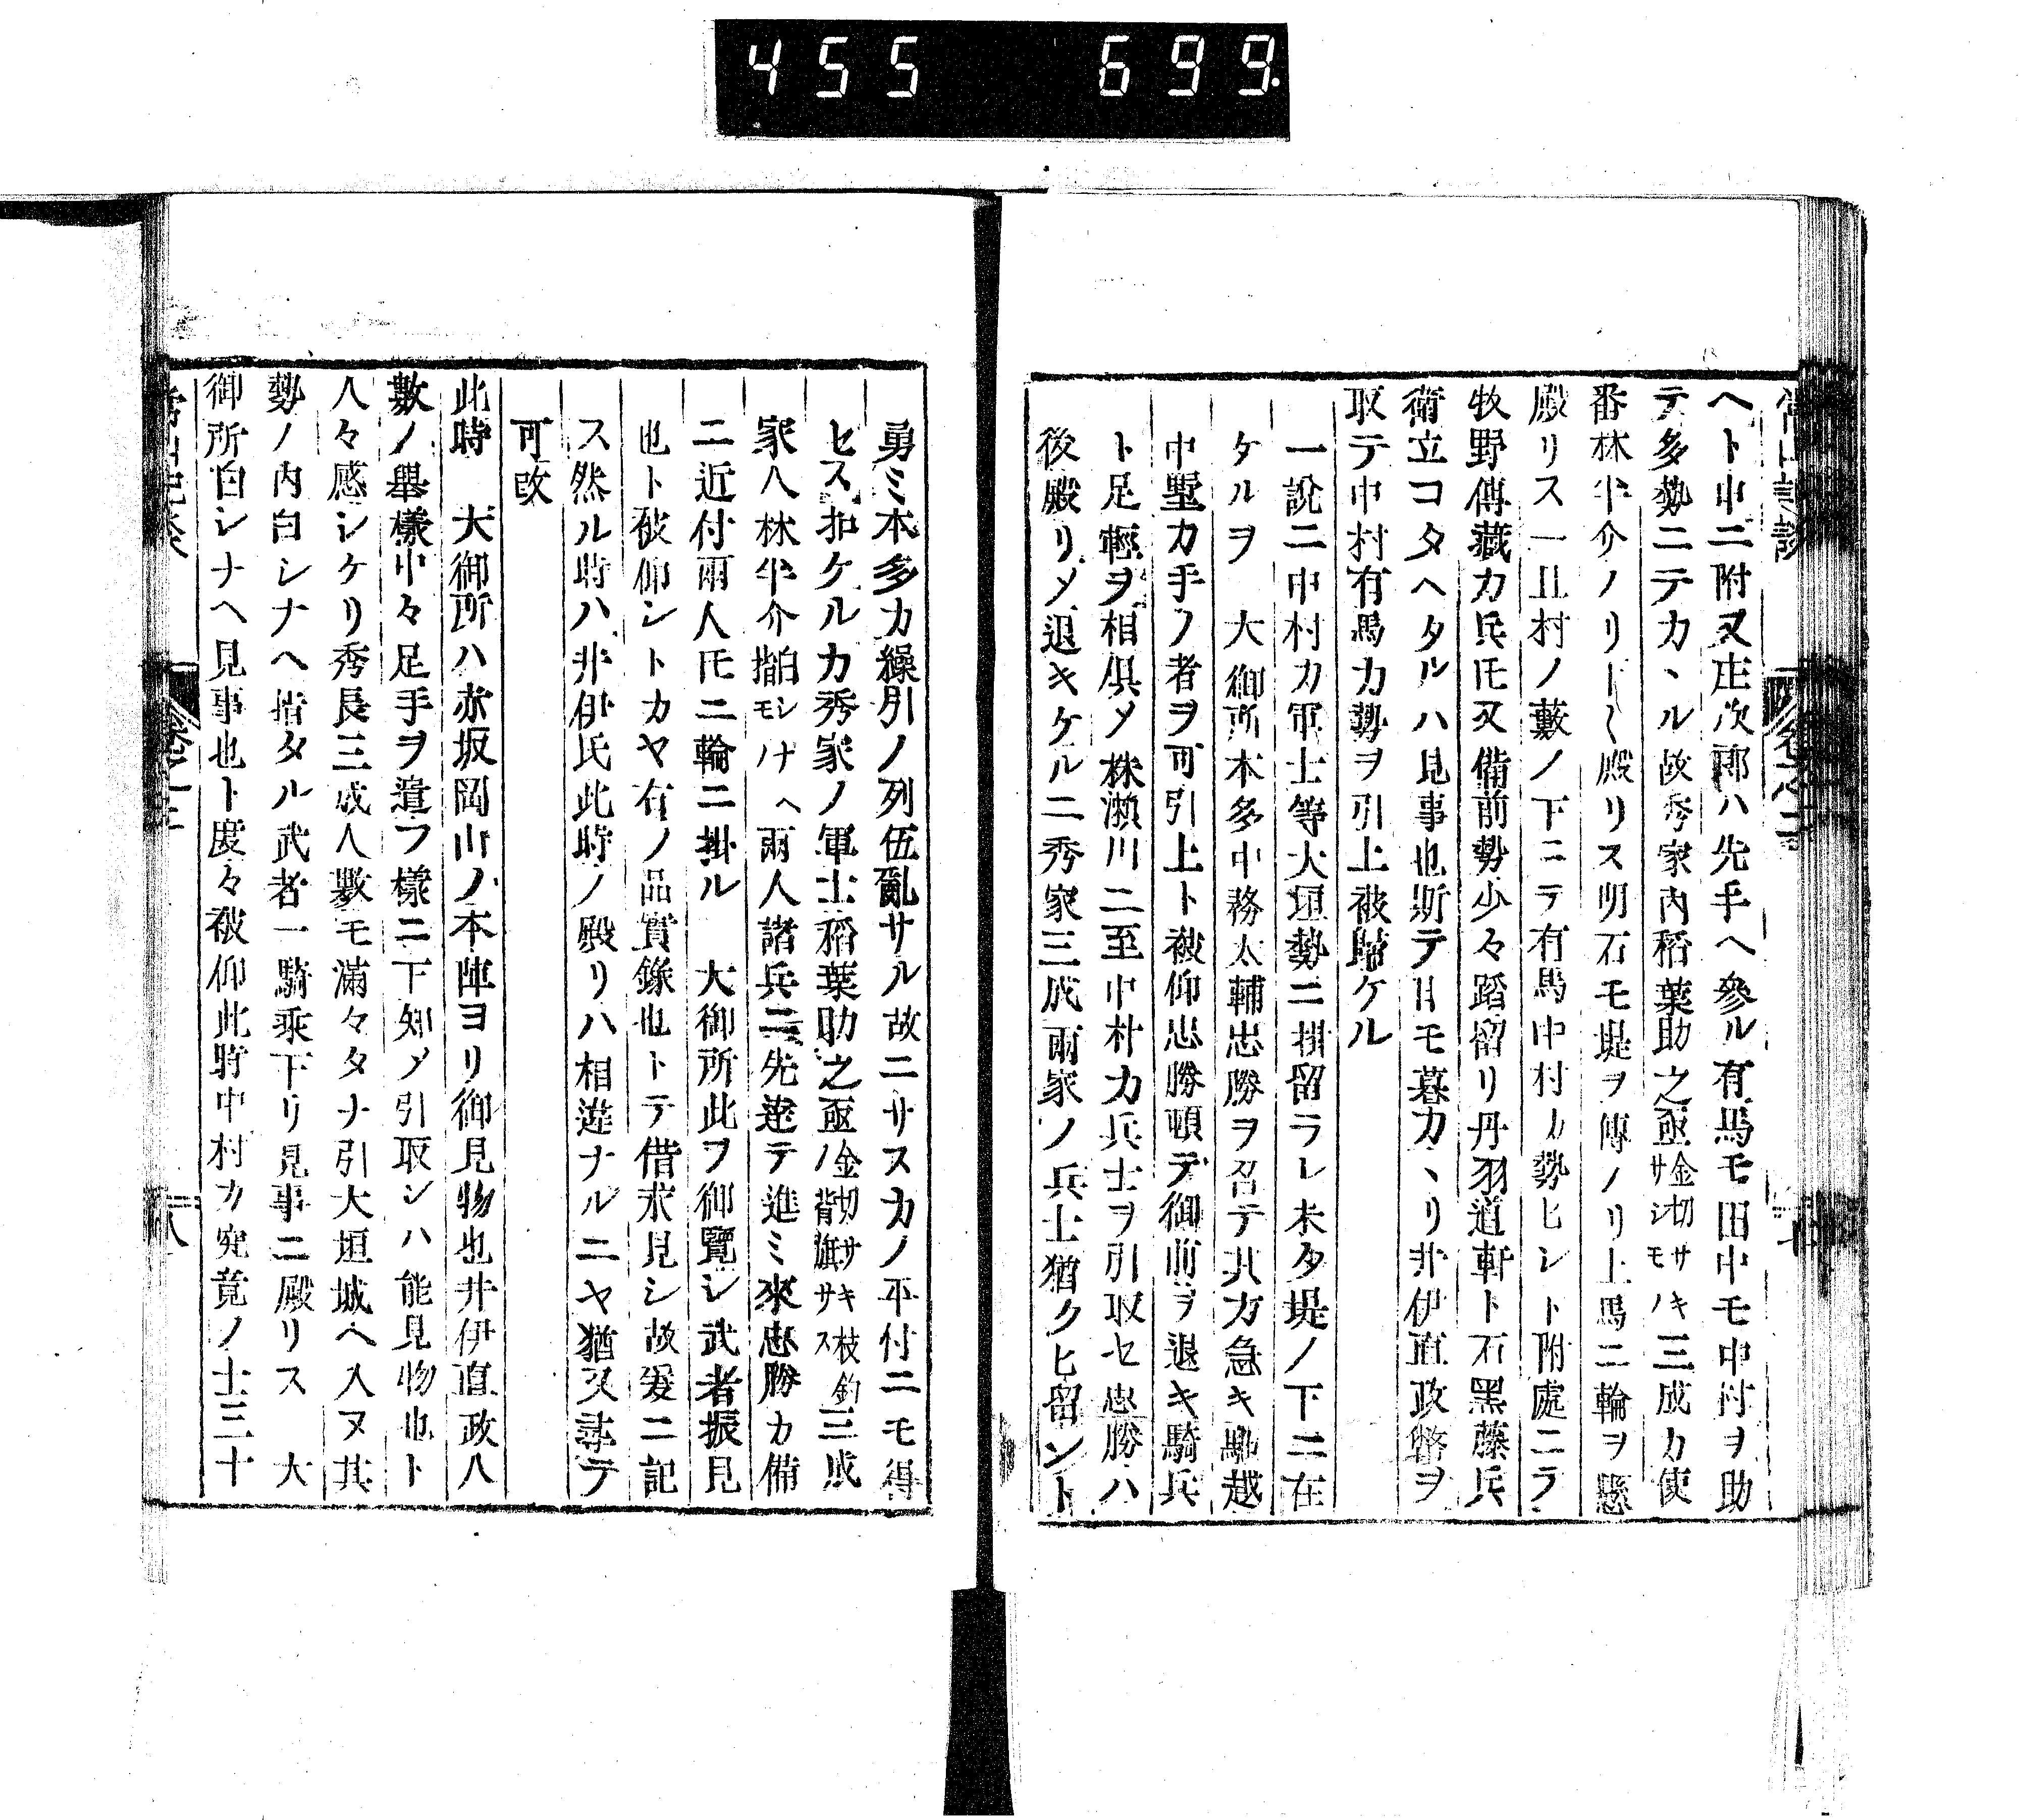 455 699.
ヘト中ニ附又庄次郎ハ先手ヘ參ル有馬モ田中モ中村ヲ助
テ多勢ニテカヽル故秀家内稻葉助之亟金切サキサシモノ三成カ使
番林半介ノリ殿リス明石モ堤ヲ傳ノリ上馬ニ輪ヲ懸
殿リス一且村ノ藪ノ下ニテ有馬中村カ勢ヒシト附處ニラ
牧野傳藏カ兵氏又備前勢少々蹈留リ丹羽道軒ト石黑藤兵
衛立コタヘタルハ見事也斯テ日モ暮カヽリ井伊直政幣ヲ
取テ中村有馬カ勢ヲ引上被歸ケル
一說ニ中村カ軍士等大垣勢ニ掛留ラレ未タ堤ノ下ニ在
ケルヲ　大御所本多中務太輔忠勝ヲ召テ其方急キ馳越
中墅カ手ノ者ヲ可引上ト被仰忠勝頓デ御前ヲ退キ騎兵
ト足輕ヲ相俱メ株瀨川ニ至中村カ兵士ヲ引取セ忠勝ハ
後殿リメ退キケルニ秀家三成兩家ノ兵士猶クヒ留ント
勇ミ本多カ繰引ノ列伍亂サル故ニサスカノ平付ニモ得
セス扣ケルカ秀家ノ軍士稻葉助之亟金切サキ枝釣ノ背旗サス三成
家人林半介指モノ白シナヘ兩人諸兵ニ先達テ進ミ來忠勝カ備
ニ近付兩人氏ニ輪ニ掛ル　大御所此ヲ御覽シ武者振見
也ト被仰シトカヤ右ノ品實錄也トテ借求見シ故爰ニ記
ス然ル時ハ井伊氏此時ノ殿リハ相違ナルニヤ猶又尋テ
可改
此時　大御所ハ赤坂岡山ノ本陣ヨリ御見物也井伊直政八
數ノ舉樣中々足手ヲ遣フ樣ニ下知メ引取シハ能見物也ト
人々感シケリ秀長三成人數モ滿々タナ引大垣城ヘ入ヌ其
勢ノ内白シナヘ指タル武者一騎乘下リ見事ニ殿リス　大
御所白シナヘ見事也ト度々被仰此時中村カ究竟ノ士三十
八